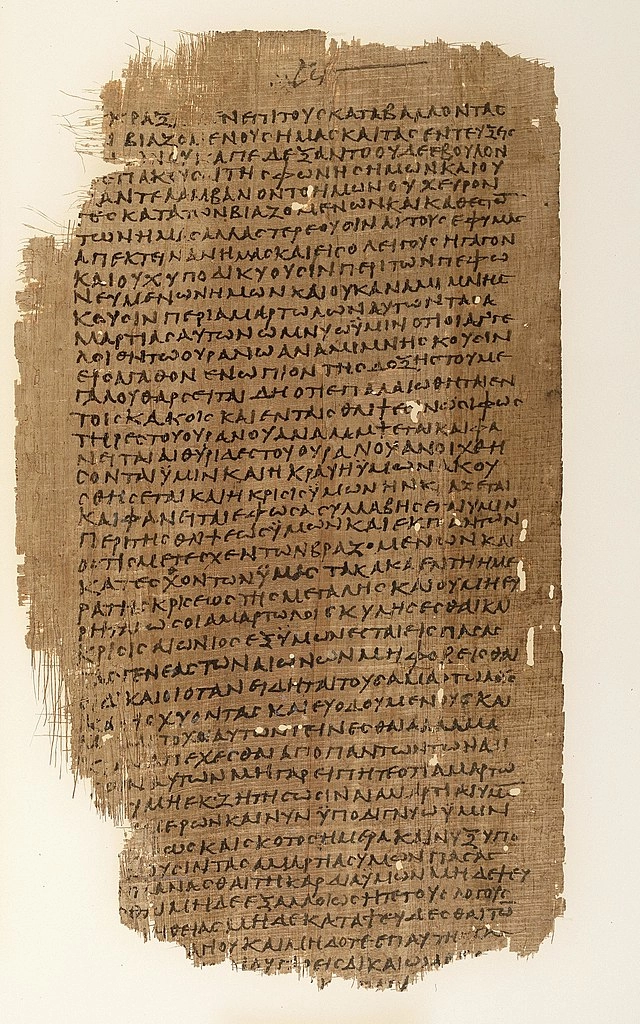 ΚΡΑΞ ΝΕΠΙΤΟΥϹΚΑΤΑΒΑΛΛΟΝΤΑϹ
ΒΙΑΖΟΜΕΝΟΥϹΗΜΑϹΚΑΙΤΑϹΕΝΤΕΥΞΕΙϹ
ΟΥΚΑΠΕΔΕΞΑΝΤΟΟΥΔΕΕΒΟΥΛΟΝ
ΕΠΑΚΟΥϹΑΙΤΗϹΦΩΝΗϹΗΜΩΝΚΑΙΟΥ
ΑΝΤΕΛΑΜΒΑΝΟΝΤΟΗΜΩΝΟΥΧΕΥΡΟΝ
ΤΕϹΚΑΤΑΤΩΝΒΙΑΖΟΜΕΝΩΝΚΑΙΚΑΤΕϹΘΟ
ΤΩΝΗΜΑϹΑΛΛΑϹΤΕΡΕΟΥϹΙΝΑΥΤΟΥϹΕΦΥΜΑϹ
ΑΠΕΚΤΕΙΝΑΝΗΜΑϹΚΑΙΕΙϹΟΛΕΙΓΟΥϹΗΓΑΓΟΝ
ΚΑΙΟΥΧΥΠΟΔΙΚΥΟΥϹΙΝΠΕΡΙΤΩΝΠΕΦΩ
ΝΕΥΜΕΝΩΝΗΜΩΝΚΑΙΟΥΚΑΝΑΜΙΜΝΗϹ
ΚΟΥϹΙΝΠΕΡΙΑΜΑΡΤΩΛΩΝΑΥΤΩΝΤΑϹΑ
ΜΑΡΤΙΑϹΑΥΤΩΝΩΜΝΥΩΫΜΙΝΟΤΙΟΙΑΓΓΕ
ΛΟΙΕΝΤΩΟΥΡΑΝΩΑΝΑΜΙΜΝΗϹΚΟΥϹΙΝ
ΕΙϹΑΓΑΘΟΝΕΝΩΠΙΟΝΤΗϹΔΟΞΗϹΤΟΥΜΕ
ΓΑΛΟΥΘΑΡϹΕΙΤΑΙΔΗΟΤΙΕΠΑΛΑΙΩΘΗΤΑΙΕΝ
ΤΟΙϹΚΑΚΟΙϹΚΑΙΕΝΤΑΙϹΘΛΙΨΕϹΙΝΩϹΙΦΩϹ
ΤΗΡΕϹΤΟΥΟΥΡΑΝΟΥΑΝΑΛΑΜΨΕΤΑΙΚΑΙΦΑ
ΝΕΙΤΑΙΑΙΘΥΡΙΔΕϹΤΟΥΟΥΡΑΝΟΥΑΝΟΙΧΘΗ
ϹΟΝΤΑΙΫΜΙΝΚΑΙΗΚΡΑΥΗΫΜΩΝΑΚΟΥ
ϹΘΗϹΕΤΑΙΚΑΙΗΚΡΙϹΙϹΫΜΩΝΗΝΚΡΑΖΕΤΑΙ
ΚΑΙΦΑΝΕΙΤΑΙΕΦΟϹΑϹΥΛΛΑΒΗϹΕΤΑΙΥΜΙΝ
ΠΕΡΙΤΗϹΘΛΙΨΕΩϹΫΜΩΝΚΑΙΕΚΠΑΝΤΩΝ
ΟϹΤΙϹΜΕΤΕϹΧΕΝΤΩΝΒΙΑΖΟΜΕΝΩΝΚΑΙ
ΚΑΤΕϹΧΟΝΤΩΝΫΜΑϹΤΑΚΑΚΑΕΝΤΗΗΜΕ
ΡΑΤΗϹΚΡΙϹΕΩϹΤΗϹΜΕΓΑΛΗϹΚΑΙΟΥΜΗΕΥ
ΡΗΤΑΙΩϹΟΙΑΜΑΡΤΩΛΟΙϹΚΥΛΗϹΕϹΘΑΙΚΑΙ
ΚΡΙϹΙϹΑΙΩΝΙΟϹΕΞΫΜΩΝΕϹΤΑΙΕΙϹΠΑϹΑϹ
ΓΕΝΕΑϹΤΩΝΑΙΩΝΩΝΜΗΦΟΒΕΙϹΘΑΙ
ΚΑΙΟΙΟΤΑΝΕΙΔΗΤΑΙΤΟΥϹΑΜΑΡΤΩΛΟΥϹ
ΙϹΧΥΟΝΤΑϹΚΑΙΕΥΟΔΟΥΜΕΝΟΥϹΚΑΙ
ΤΟΧΟΙΑΥΤΩΝΓΕΙΝΕϹΘΑΙΑΛΛΑΜΑ
ΑΠΕΧΕϹΘΑΙΑΠΟΠΑΝΤΩΝΤΩΝΑΔΙ
ΑΥΤΩΝΜΗΓΑΡΕΙΠΗΤΕΟΤΙΑΜΑΡΤΩ
ΜΗΕΚΖΗΤΗϹΩϹΙΝΑΙΑΜΑΡΤΙΑΙΥΜΩ
ΜΕΡΩΝΚΑΙΝΥΝΫΠΟΔΙΓΝΥΩΫΜΙΝ
ΦΩϹΚΑΙϹΚΟΤΟϹΗΜΕΡΑΚΑΙΝΥΞΥΠΟ
ΟΥϹΙΝΤΑϹΑΜΑΡΤΙΑϹΥΜΩΝΠΑϹΑϹ
ΠΛΑΝΑϹΘΑΙΤΗΚΑΡΔΙΑΥΜΩΝΜΗΔΕΨΕΥ
ΜΗΔΕΕΞΑΛΛΟΙΩϹΗΤΕΤΟΥϹΛΟΓΟΥϹ
ΘΕΙΑϹΜΗΔΕΚΑΤΑΨΕΥΔΕϹΘΑΙΤΩ
ΚΑΙΜΗΔΟΤΕΕΠΑΥΤΗ
ΕΙϹΔΙΚΑΙΩ